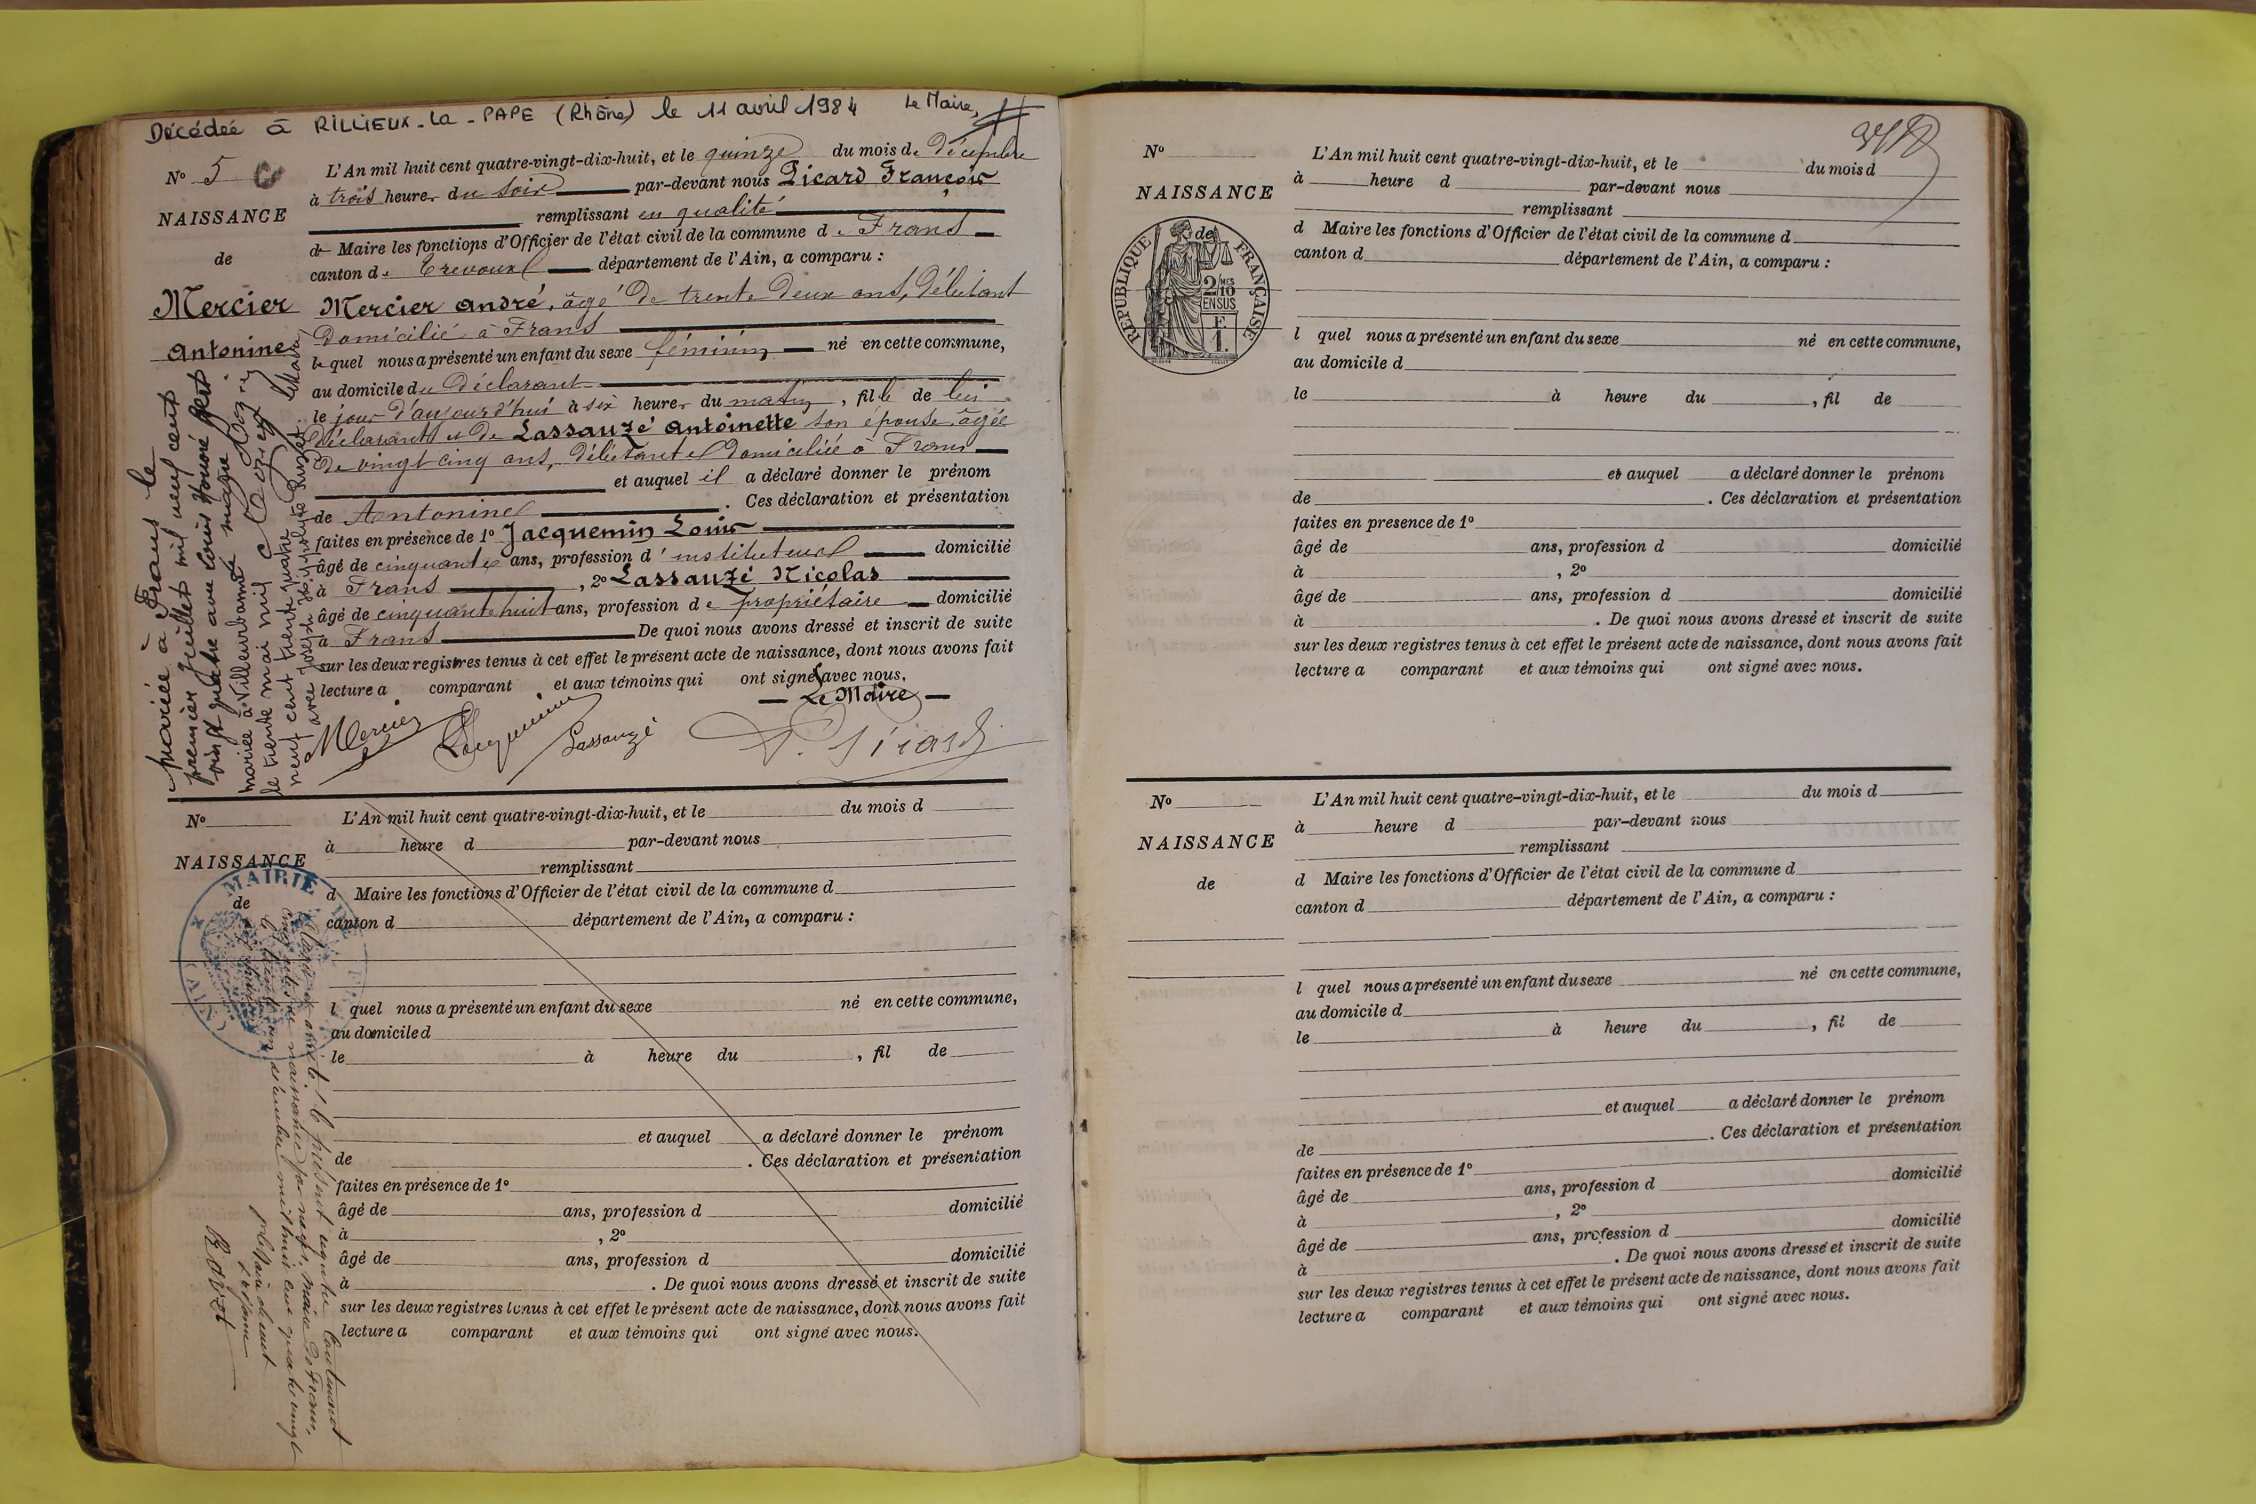 Décédée à RILLIEUX-La-PAPE (Rhône) le 11 avril 1984 Le Maire,
No 5
NAISSANCE
de
Mercier
Antonine
L'An mil huit cent quatre-vingt-dix-huit, et le quinze du mois de décembre
à trois heures du soir par-devant nous Picard François
remplissant en qualité
de Maire les fonctions d'Officier de l'état civil de la commune de Frans
canton de Trévoux département de l'Ain, a comparu :
Mercier André, âgé de trente deux ans, débitant
domicilié à Frans
lequel nous a présenté un enfant du sexe féminin né en cette commune,
au domicile du déclarant
le jour d'aujourd'hui à six heures du matin, fille de lui
déclarant et de Lassauzé Antoinette son épouse âgée
de vingt cinq ans, débitante domiciliée à Frans
et auquel il a déclaré donner le prénom
de Antonine. Ces déclaration et présentation
faites en présence de 1o Jacquemin Louis
âgé de cinquante ans, profession d'instituteur domicilié
à Frans, 2o Lassauzé Nicolas
âgé de cinquante huit ans, profession de propriétaire domicilié
à Frans De quoi nous avons dressé et inscrit de suite
sur les deux registres tenus à cet effet le présent acte de naissance, dont nous avons fait
lecture a comparant et aux témoins qui ont signé avec nous.
Le Maire
Mercier Jacquemin Lassauzé P. Picard
mariée à Frans le
premier juillet mil neuf cent
vingt quatre avec Louis Honoré
mariée à Villeurbanne
le trente mai mil
neuf cent trente quatre
avec Joseph Hippolyte
No
NAISSANCE
de
MAIRIE
L'An mil huit cent quatre-vingt-dix-huit, et le du mois d
à heure d par-devant nous
remplissant
d Maire les fonctions d'Officier de l'état civil de la commune d
canton d département de l'Ain, a comparu :
l quel nous a présenté un enfant du sexe né en cette commune,
au domicile d
le à heure du , fil de
et auquel a déclaré donner le prénom
de . Ces déclaration et présentation
faites en présence de 1o
âgé de ans, profession d domicilié
à , 2o
âgé de ans, profession d domicilié
à . De quoi nous avons dressé et inscrit de suite
sur les deux registres tenus à cet effet le présent acte de naissance, dont nous avons fait
lecture a comparant et aux témoins qui ont signé avec nous.
Clos et arrêté le présent registre contenant
cinq actes de naissance par nous, maire de Frans,
le trente un décembre mil huit cent quatre vingt
No
NAISSANCE
de
RÉPUBLIQUE FRANÇAISE
2/10
EN SUS
L'An mil huit cent quatre-vingt-dix-huit, et le du mois d
à heure d par-devant nous
remplissant
d Maire les fonctions d'Officier de l'état civil de la commune d
canton d département de l'Ain, a comparu :
l quel nous a présenté un enfant du sexe né en cette commune,
au domicile d
le à heure du , fil de
et auquel a déclaré donner le prénom
de . Ces déclaration et présentation
faites en presence de 1o
âgé de ans, profession d domicilié
à , 2o
âgé de ans, profession d domicilié
à . De quoi nous avons dressé et inscrit de suite
sur les deux registres tenus à cet effet le présent acte de naissance, dont nous avons fait
lecture a comparant et aux témoins qui ont signé avec nous.
No
NAISSANCE
de
L'An mil huit cent quatre-vingt-dix-huit, et le du mois d
à heure d par-devant nous
remplissant
d Maire les fonctions d'Officier de l'état civil de la commune d
canton d département de l'Ain, a comparu :
l quel nous a présenté un enfant du sexe né en cette commune,
au domicile d
le à heure du , fil de
et auquel a déclaré donner le prénom
de . Ces déclaration et présentation
faites en présence de 1o
âgé de ans, profession d domicilié
à , 2o
âgé de ans, profession d domicilié
à . De quoi nous avons dressé et inscrit de suite
sur les deux registres tenus à cet effet le présent acte de naissance, dont nous avons fait
lecture a comparant et aux témoins qui ont signé avec nous.